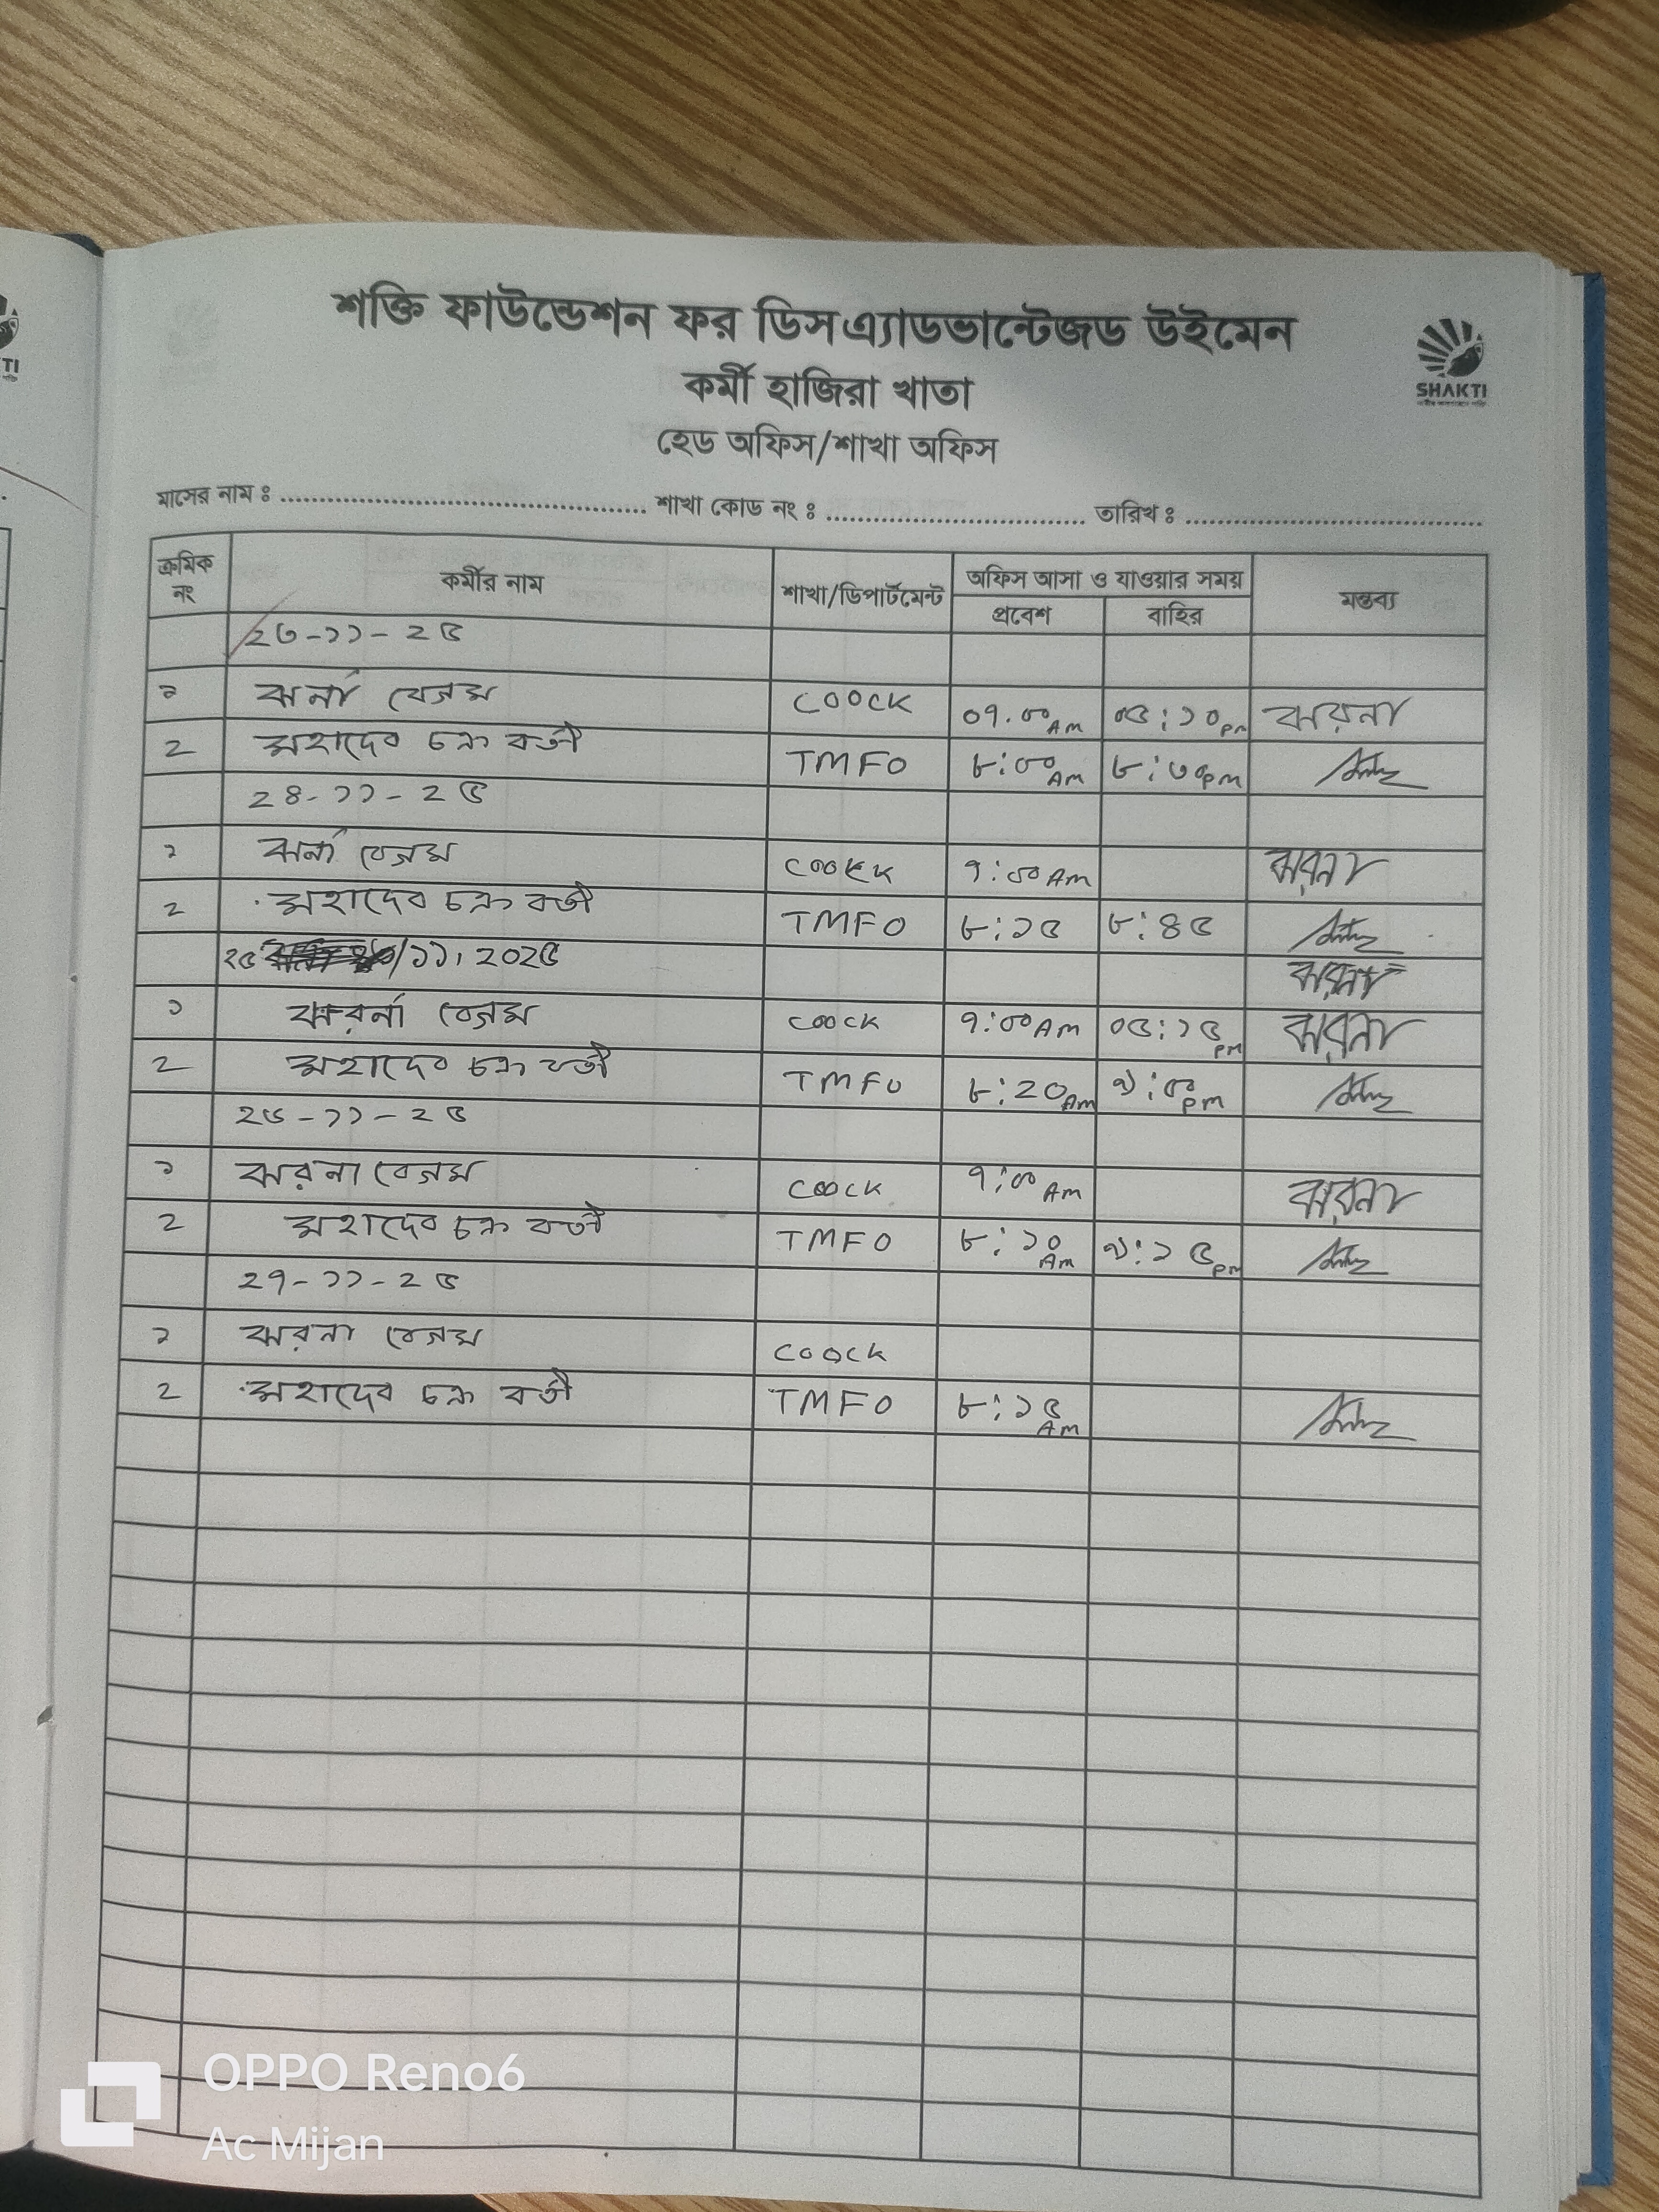 শক্তি ফাউন্ডেশন ফর ডিসএ্যাডভান্টেজড উইমেন
SHAKTI
কর্মী হাজিরা খাতা
হেড অফিস/শাখা অফিস
মাসের নাম ঃ ........ শাখা কোড নং ঃ ........ তারিখ ঃ ........
ক্রমিক নং কর্মীর নাম শাখা/ডিপার্টমেন্ট অফিস আসা ও যাওয়ার সময় মন্তব্য
প্রবেশ বাহির
২৩-১১-২৫
১ ঝর্না বেগম COOCK ০৭.০০ AM ০৫:১০ pm ঝরনা
২ মহাদেব চক্রবর্তী TMFO ৮:০০ AM ৮:৩০ pm
২৪-১১-২৫
১ ঝর্না বেগম COOKK ৭:০০ AM ঝরনা
২ মহাদেব চক্রবর্তী TMFO ৮:১৫ ৮:৪৫
২৫/১১, ২০২৫ ঝরনা
১ ঝরর্না বেগম COOCK ৭:০০ AM ০৫:১৫ pm ঝরনা
২ মহাদেব চক্রবর্তী TMFO ৮:২০ AM ৯:৫০ pm
২৬-১১-২৫
১ ঝরনা বেগম COOCK ৭:০০ AM ঝরনা
২ মহাদেব চক্রবর্তী TMFO ৮:১০ AM ৯:১৫ pm
২৭-১১-২৫
১ ঝরনা বেগম COOCK
২ মহাদেব চক্রবর্তী TMFO ৮:১৫ AM
OPPO Reno6
Ac Mijan